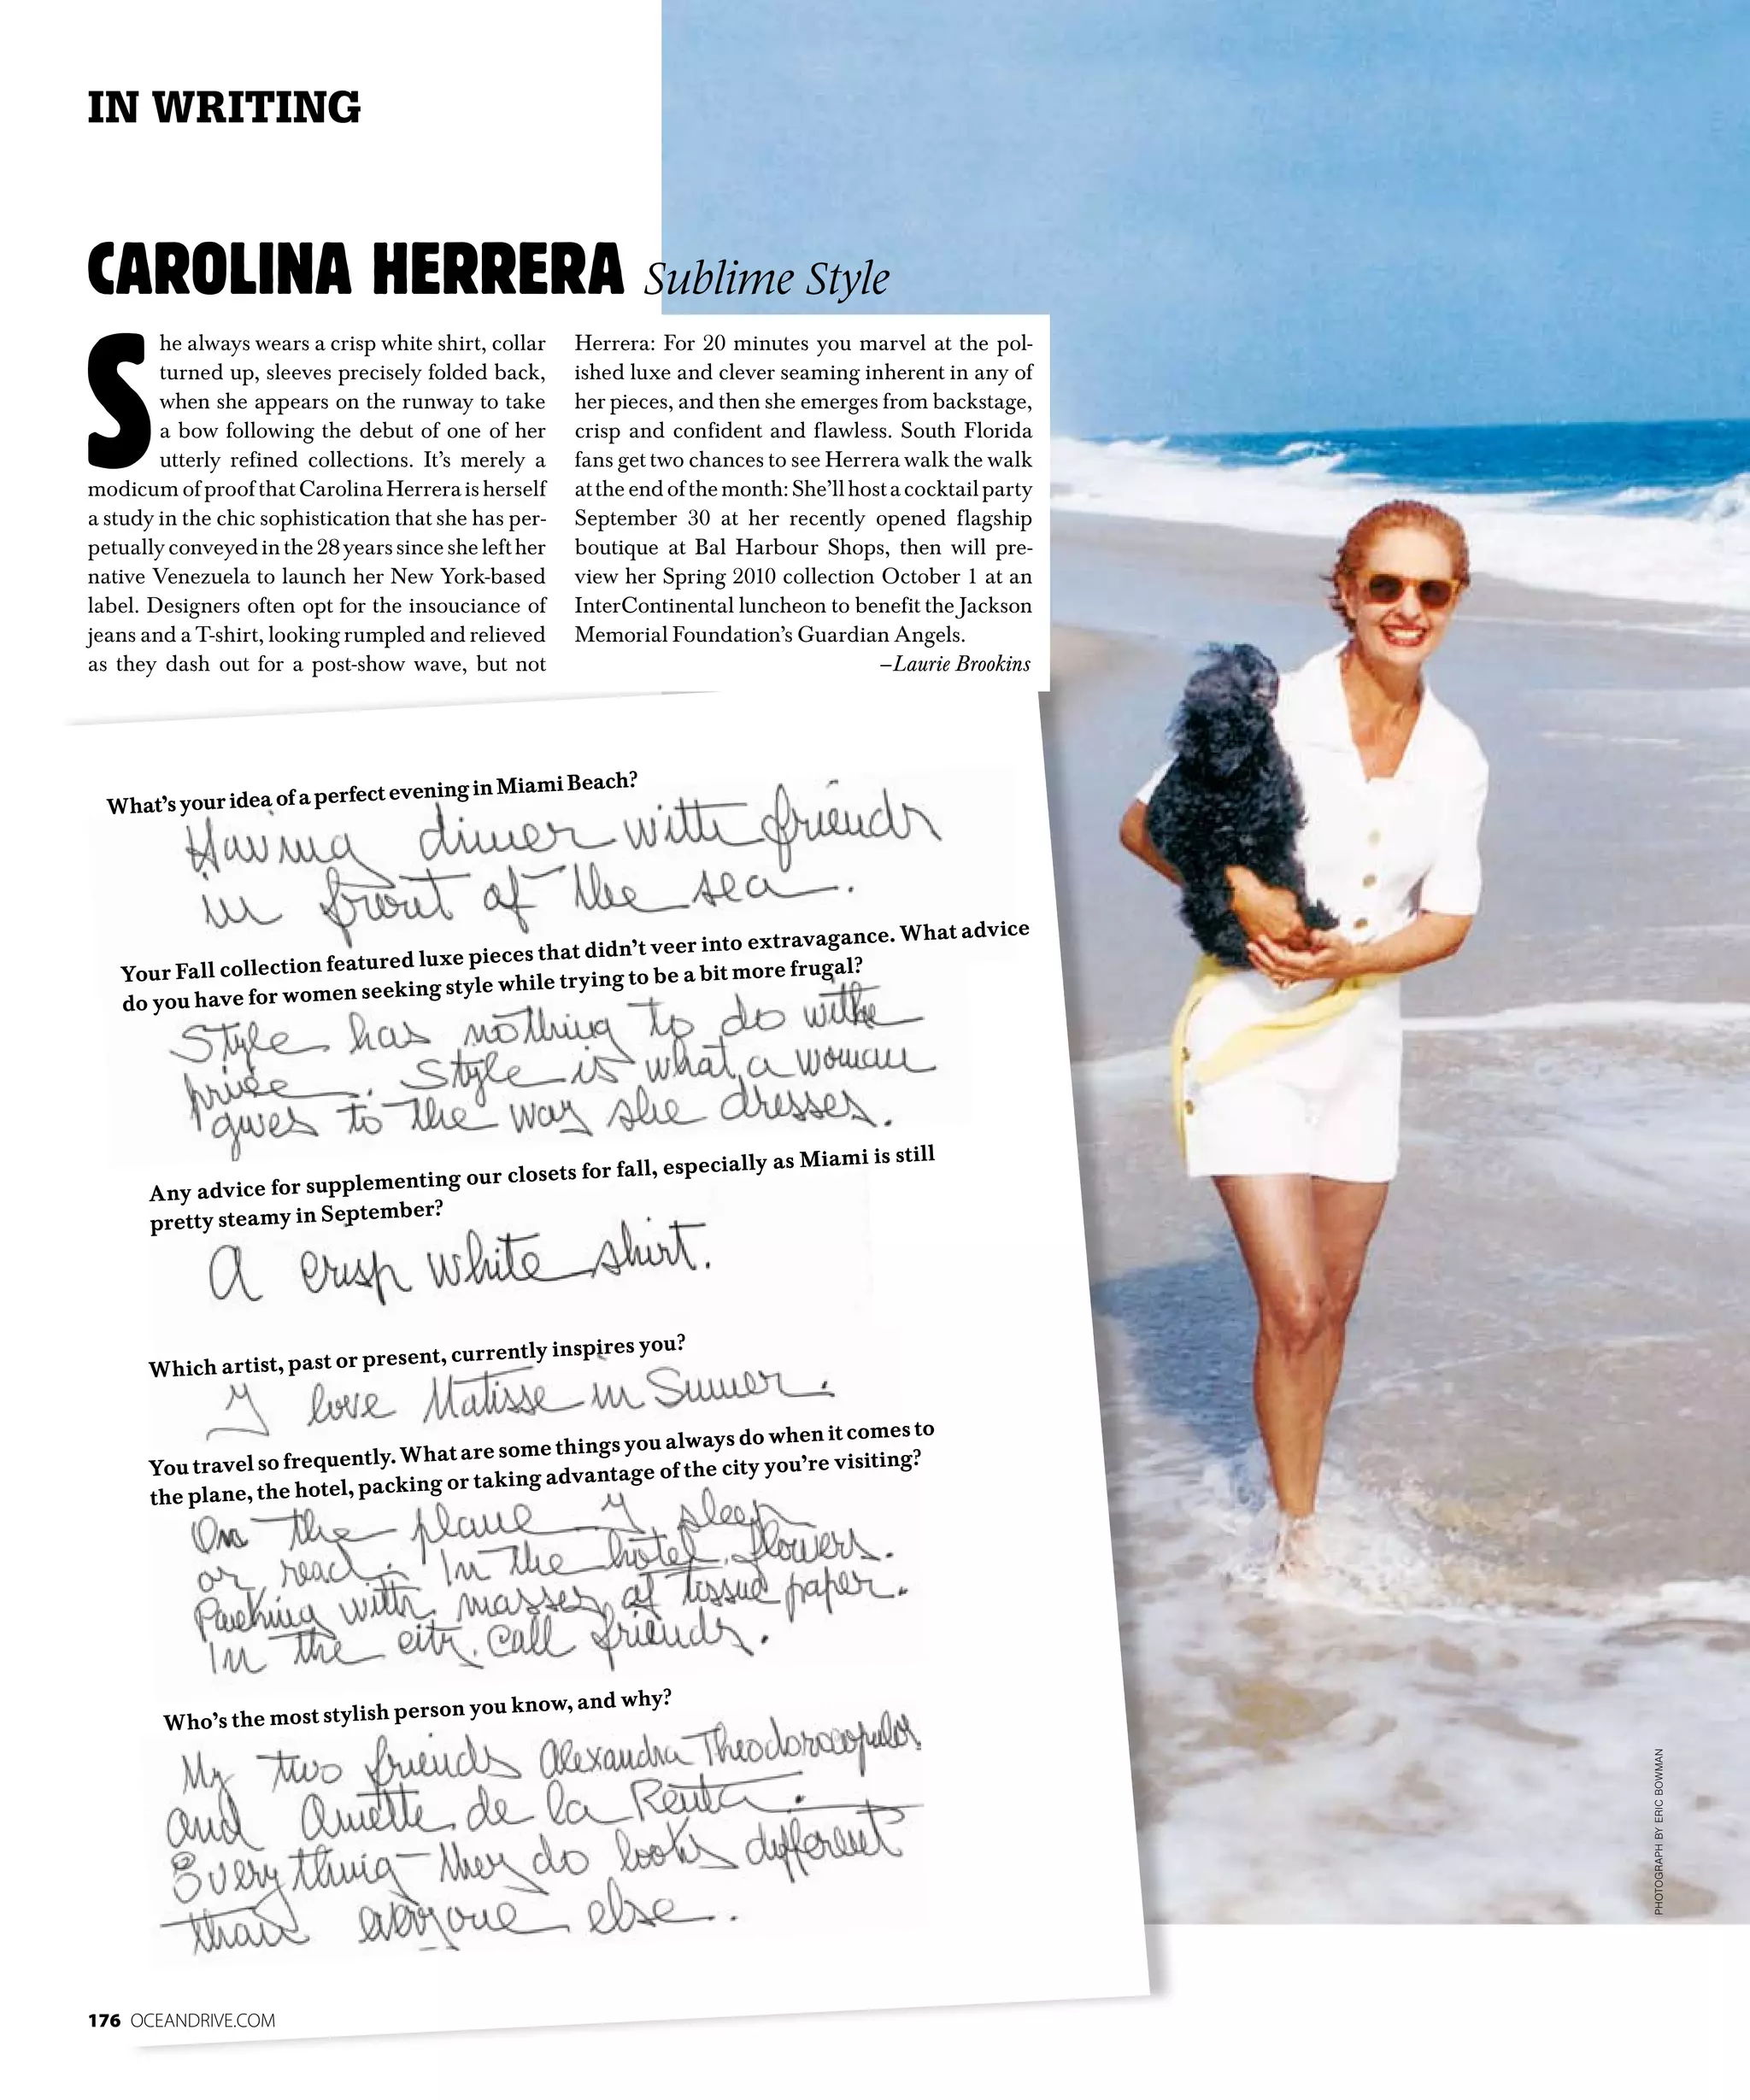 IN WRITING
CAROLINA HERRERA Sublime Style
She always wears a crisp white shirt, collar
turned up, sleeves precisely folded back,
when she appears on the runway to take
a bow following the debut of one of her
utterly refined collections. It's merely a
modicum of proof that Carolina Herrera is herself
a study in the chic sophistication that she has per-
petually conveyed in the 28 years since she left her
native Venezuela to launch her New York-based
label. Designers often opt for the insouciance of
jeans and a T-shirt, looking rumpled and relieved
as they dash out for a post-show wave, but not
Herrera: For 20 minutes you marvel at the pol-
ished luxe and clever seaming inherent in any of
her pieces, and then she emerges from backstage,
crisp and confident and flawless. South Florida
fans get two chances to see Herrera walk the walk
at the end of the month: She'll host a cocktail party
September 30 at her recently opened flagship
boutique at Bal Harbour Shops, then will pre-
view her Spring 2010 collection October 1 at an
InterContinental luncheon to benefit the Jackson
Memorial Foundation's Guardian Angels.
–Laurie Brookins
What's your idea of a perfect evening in Miami Beach?
Having dinner with friends
in front of the sea.
Your Fall collection featured luxe pieces that didn't veer into extravagance. What advice
do you have for women seeking style while trying to be a bit more frugal?
Style has nothing to do withe
price. Style is what a woman
gives to the way she dresses.
Any advice for supplementing our closets for fall, especially as Miami is still
pretty steamy in September?
A crisp white shirt.
Which artist, past or present, currently inspires you?
I love Matisse in Summer.
You travel so frequently. What are some things you always do when it comes to
the plane, the hotel, packing or taking advantage of the city you're visiting?
On the plane I sleep
or read. In the hotel, flowers.
Packing with masses of tissue paper.
In the city, call friends.
Who's the most stylish person you know, and why?
My two friends Alexandra Theodoracopulos
and Anette de la Renta.
Everything they do looks different
than anyone else.
PHOTOGRAPH BY ERIC BOWMAN
176 OCEANDRIVE.COM